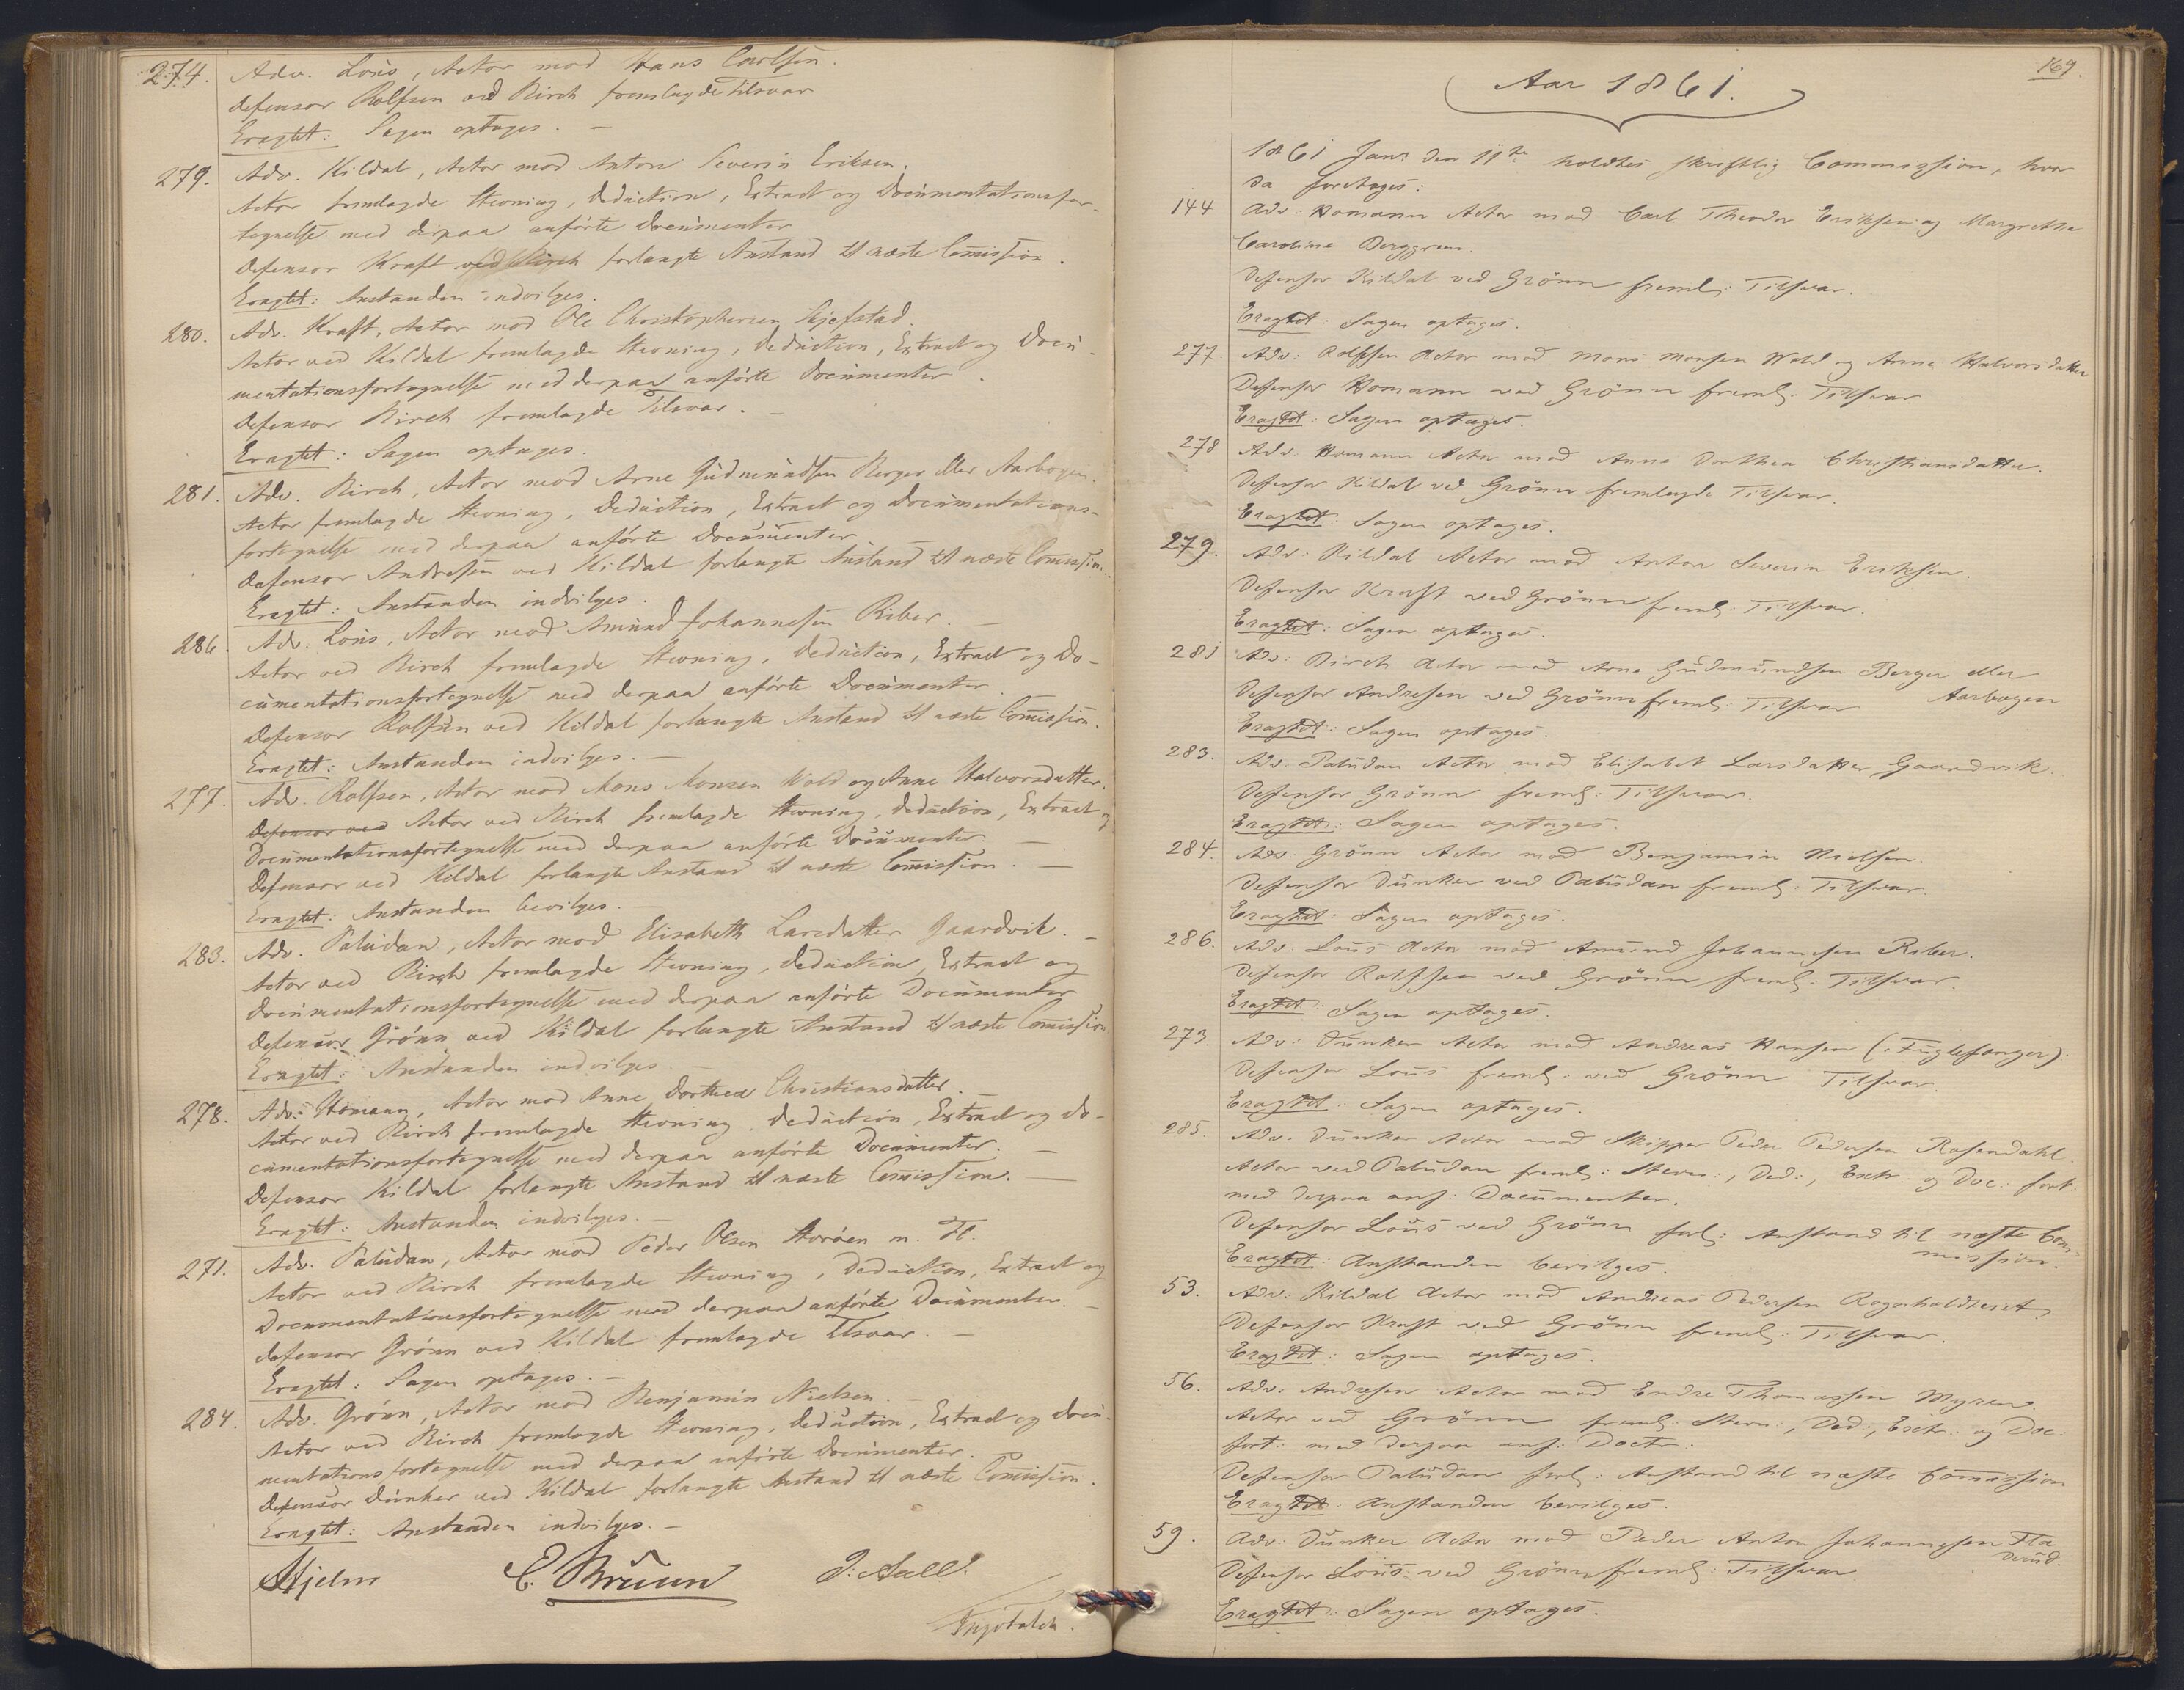 274. Adv. Loüs, Actor mod Hans Carlsen.
Defensor Rolfsen ved Birch fremlagde Tilsvar
Eragtet: Sagen optages. —
279. Adv. Kildal, Actor mod Anton Severin Eriksen.
Actor fremlagde Stevning, Deduction, Extract og Documentationsfor-
tegnelse med derpaa anförte Documenter
Defensor Kraft ved Birch forlangte Anstand til næste Comission.
Eragtet: Anstanden indvilges.
280. Adv. Kraft, Actor mod Ole Christophersen
Actor ved Kildal fremlagde Stevning, Deduction, Extract og Docu-
mentationsfortegnelse med derpaa anförte Documenter.
Defensor Birch fremlagde Tilsvar. —
Eragtet: Sagen optages.
281. Adv. Birch, Actor mod Arne Gudmundsen Berger eller Aarbogen.
Actor fremlagde Stevning, Deduction, Extract og Documentations-
fortegnelse med derpaa anförte Documenter
Defensor Andresen ved Kildal forlangte Anstand til næste Comission.
Eragtet: Anstanden indvilges.
286. Adv. Loüs, Actor mod Amund Johannesen Riber. —
Actor ved Birch fremlagde Stevning, Deduction, Extract og Do-
cumentationsfortegnelse med derpaa anförte Documenter.
Defensor Rolfsen ved Kildal forlangte Anstand til næste Comission.
Eragtet: Anstanden indvilges. —
277. Adv. Rolfsen, Actor mod Mons Monsen Wold og Anne Halvorsdatter.
Defensor ved Actor ved Birch fremlagde Stevning, Deduction, Extract og
Documentationsfortegnelse med derpaa anförte Documenter. —
Defensor ved Kildal forlangte Anstand til næste Comission. —
Eragtet: Anstanden bevilges. —
283. Adv. Paludan, Actor mod Elisabeth Larsdatter Gaardvik. —
Actor ved Birch fremlagde Stevning, Deduction, Extract og
Documentationsfortegnelse med derpaa anförte Documenter
Defensor Grönn ved Kildal forlangte Anstand til næste Comission
Eragtet: Anstanden indvilges —
278. Adv. Homann, Actor mod Anne Dorthea Christiansdatter. —
Actor ved Birch fremlagde Stevning, Deduction, Extract og Do-
cumentationsfortegnelse med derpaa anförte Documenter. —
Defensor Kildal forlangte Anstand til næste Comission. —
Eragtet: Anstanden indvilges. —
271. Adv. Paludan, Actor mod Peder Olsen Storöen m. Fl.
Actor ved Birch fremlagde Stevning, Deduction, Extract og
Documentationsfortegnelse med derpaa anförte Documenter. —
Defensor Grönn ved Kildal fremlagde Tilsvar. —
Eragtet: Sagen optages. —
284. Adv. Grönn, Actor mod Benjamin Nielsen. —
Actor ved Birch fremlagde Stevning, Deduction, Extract og Docu-
mentationsfortegnelse med derpaa anförte Documenter.
Defensor Dunker ved Kildal forlangte Anstand til næste Comission.
Eragtet: Anstanden indvilges. —
Hjelm E. Bruun J. Aall.
169.
Aar 1861.
1861 Janr den 11te holdtes skriftlig Commission, hvor
da foretages:
144 Adv: Homann Actor mod Carl Theodor Eriksen og Margrethe
Caroline Berggren.
Defensor Kildal ved Grönn freml: Tilsvar.
Eragtet: Sagen optages.
277. Adv: Rolfsen Actor mod Mons Monsen Wold og Anne Halvorsdatter
Defensor Homann ved Grönn freml: Tilsvar
Eragtet: Sagen optages.
278 Adv. Homann Actor mod Anne Dorthea Christiansdatter.
Defensor Kildal ved Grönn fremlagde Tilsvar.
Eragtet: Sagen optages.
279. Adv: Kildal Actor mod Anton Severin Eriksen.
Defensor Kraft ved Grönn freml: Tilsvar.
Eragtet: Sagen optages.
281 Adv: Birch Actor mod Arne Gudmundsen Berger eller
Aarbogen
Defensor Andresen ved Grönn freml: Tilsvar
Eragtet: Sagen optages.
283. Adv. Paludan Actor mod Elisabet Larsdatter Gaardvik.
Defensor Grönn freml: Tilsvar.
Eragtet: Sagen optages.
284. Adv. Grönn Actor mod Benjamin Nielsen.
Defensor Dunker ved Paludan freml: Tilsvar.
Eragtet: Sagen optages.
286. Adv. Loüs Actor mod Amund Johannesen Riber.
Defensor Rolfsen ved Grönn freml: Tilsvar.
Eragtet: Sagen optages.
273. Adv: Dunker Actor mod Andreas Hansen (Fuglefanger).
Defensor Loüs freml: ved Grönn Tilsvar.
Eragtet: Sagen optages.
285. Adv. Dunker Actor mod Skipper Peder Pedersen Rosendahl.
Actor ved Paludan freml: Stevn:, Ded:, Extr: og Doc: fort:
med derpaa anf: Documenter.
Defensor Loüs ved Grönn forl: Anstand til næste Com-
mission.
Eragtet: Anstanden bevilges.
53. Adv: Kildal Actor mod Andreas Pedersen
Defensor Kraft ved Grönn freml: Tilsvar.
Eragtet: Sagen optages.
56. Adv: Andresen Actor mod Endre Thomassen Myren
Actor ved Grönn freml: Stevn:, Ded:, Extr: og Doc:
fort: med derpaa anf: Doctr.
Defensor Paludan forl: Anstand til næste Commission
Eragtet: Anstanden bevilges.
59. Adv: Dunker Actor mod Peder Anton Johannesen Fla
derud.
Defensor Loüs ved Grönn freml: Tilsvar
Eragtet: Sagen optages.